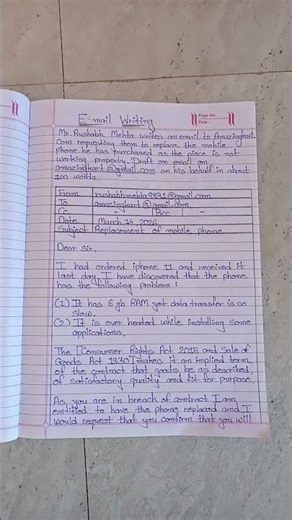 E-mail Writing
Page No.
Date
Mr. Rushabh Mehta writes an email to Amazingkart.
Com requesting them to replace the mobile
phone he has purchased as the piece is not
working properly. Draft an email on
amazingkart@gmail.com on his behalf in about
100 words.
From rushabhmehta1921@gmail.com
To amazingkart@gmail.com
Cc - Bcc -
Date March 14,
Subject Replacement of mobile phone
Dear Sir,
I had ordered iphone 11 and received it
last day. I have discovered that the phone
has the following problems :
(1) It has 6 gb RAM yet data transfer is so
slow.
(2) It is over heated while installing some
applications.
The [Consumer Rights Act 2015 and Sale of
Goods Act 1930] makes it an implied term
of the contract that goods be as described,
of satisfactory quality and fit for purpose.
As, you are in breach of contract I am
entitled to have the phone replaced and I
would request that you confirm that you will